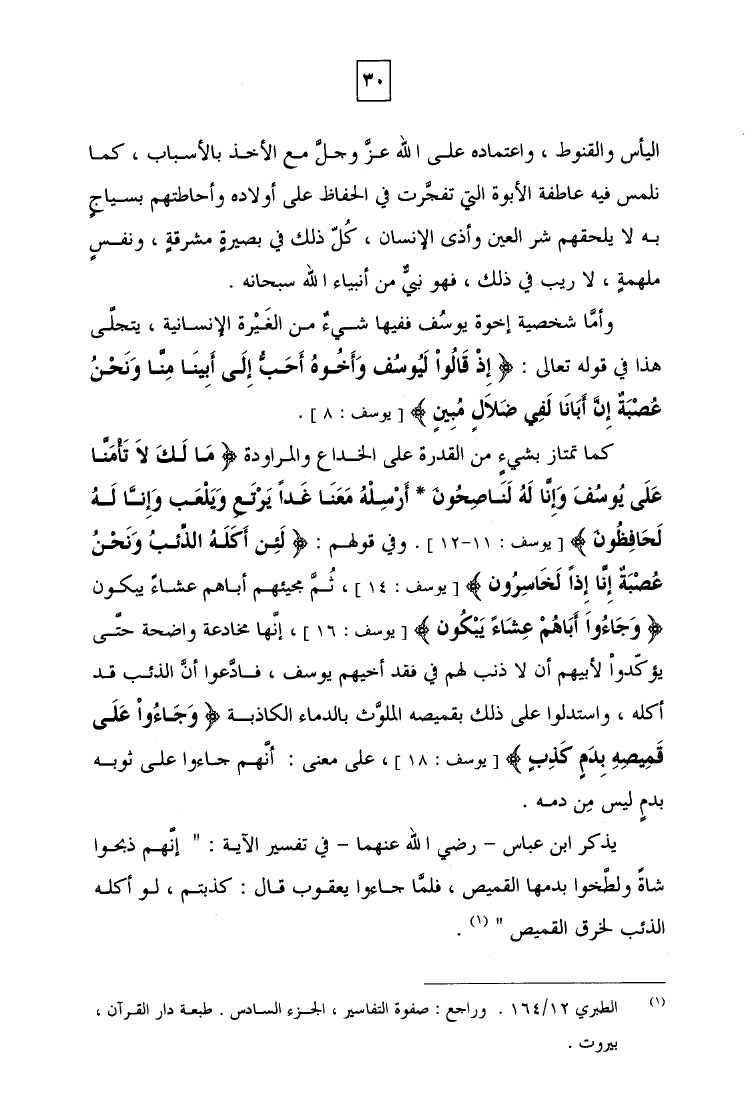 ٣٠
اليأس والقنوط ، واعتماده على الله عزَّ وجلَّ مع الأخذ بالأسباب ، كما
نلمس فيه عاطفة الأبوة التي تفجَّرت في الحفاظ على أولاده وأحاطتهم بسياجٍ
به لا يلحقهم شر العين وأذى الإنسان ، كُلّ ذلك في بصيرةٍ مشرقةٍ ، ونفسٍ
ملهمةٍ ، لا ريب في ذلك ، فهو نبيٌّ من أنبياء الله سبحانه .
وأمَّا شخصية إخوة يوسُف ففيها شيءٌ من الغَيْرة الإنسانية ، يتجلَّى
هذا في قوله تعالى : ﴿ إِذْ قَالُواْ لَيُوسُف وَأَخُوهُ أَحَبُّ إِلَى أَبِينَا مِنَّا وَنَحْنُ
عُصْبَةٌ إِنَّ أَبَانَا لَفِي ضَلاَلٍ مُبِينٍ ﴾ [ يوسف : ٨ ] .
كما تمتاز بشيءٍ من القدرة على الخداع والمراودة ﴿ مَا لَكَ لاَ تَأْمَنَّا
عَلَى يُوسُفَ وَإِنَّا لَهُ لَنَاصِحُونَ * أَرْسِلْهُ مَعَنَا غَداً يَرْتَعِ وَيَلْعَب وَإِنَّا لَهُ
لَحَافِظُونَ ﴾ [ يوسف : ١١-١٢ ] . وفي قولهم : ﴿ لَئِن أَكَلَهُ الذِّئبُ وَنَحْنُ
عُصْبَةٌ إِنَّا إِذاً لَخَاسِرُون ﴾ [ يوسف : ١٤ ] ، ثُمَّ مجيئهم أباهم عشاءً يبكون
﴿ وَجَاءُواَ أَبَاهُمْ عِشَاءً يَبْكُون ﴾ [ يوسف : ١٦ ] ، إنَّها مخادعة واضحة حتَّى
يؤكّدواْ لأبيهم أن لا ذنب لهم في فقد أخيهم يوسف ، فادَّعوا أنَّ الذئب قد
أكله ، واستدلوا على ذلك بقميصه الملوَّث بالدماء الكاذبة ﴿ وَجَاءُواْ عَلَى
قَمِيصِهِ بِدَمٍ كَذِبٍ ﴾ [ يوسف : ١٨ ] ، على معنى : أنَّهم جاءوا على ثوبه
بدمٍ ليس مِن دمه .
يذكر ابن عباس – رضي الله عنهما – في تفسير الآية : " إنَّهم ذبحوا
شاةً ولطَّخوا بدمها القميص ، فلمَّا جاءوا يعقوب قال : كذبتم ، لو أكله
الذئب لخرق القميص " (١) .
(١) الطبري ١٦٤/١٢ . وراجع : صفوة التفاسير ، الجزء السادس . طبعة دار القرآن ،
بيروت .